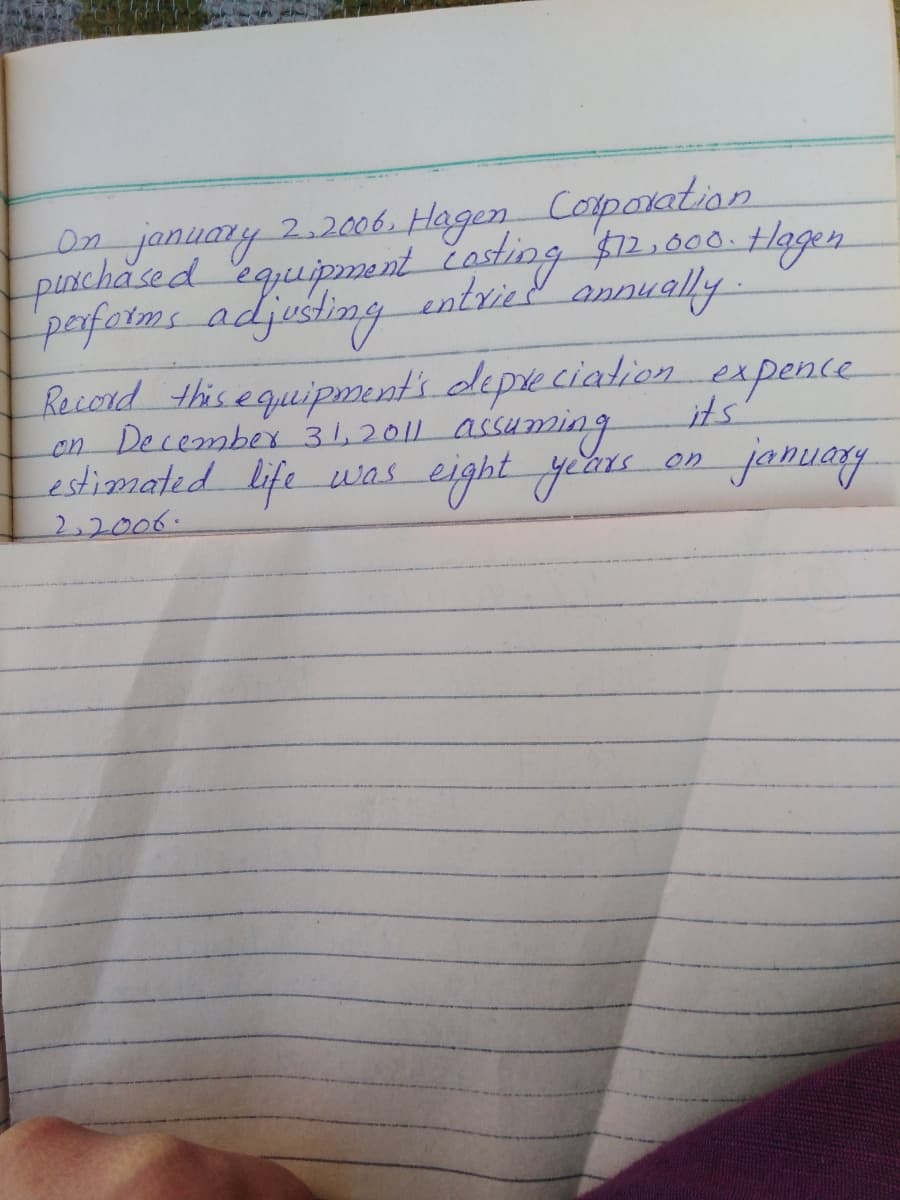 On january 2,2006, Hagen Corporation
purchased equipment costing $72,000. Hagen
performs adjusting entries annually.
Record this equipment's depreciation expence
on December 31, 2011 assuming its
estimated life was eight years on january
2,2006.